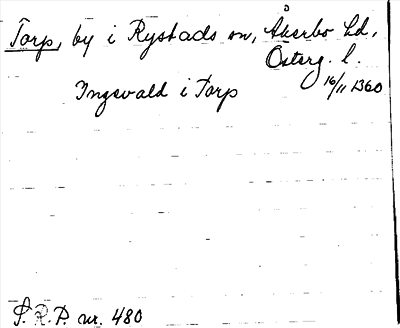 Torp, by i Rystads sn, Åkerbo hd,
Österg. l.
Ingevald i Torp 16/11 1360
S.R.P. nr. 480